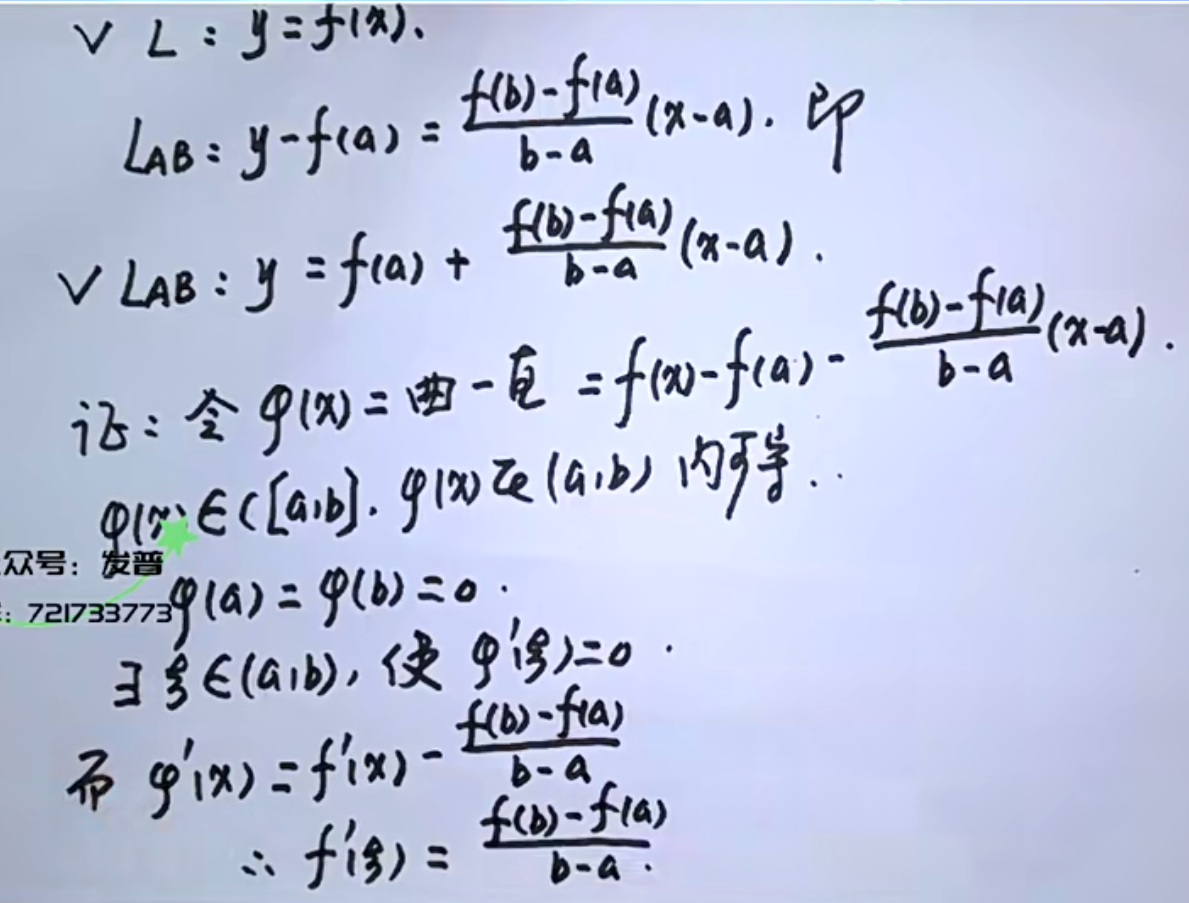 √ L: y=f(x).
L_AB: y-f(a) = \frac{f(b)-f(a)}{b-a}(x-a). 即
√ L_AB: y = f(a) + \frac{f(b)-f(a)}{b-a}(x-a).
证: 令 φ(x) = 曲 - 直 = f(x)-f(a) - \frac{f(b)-f(a)}{b-a}(x-a).
φ(x)∈C[a,b]. φ(x)在(a,b)内可导..
众号：发普
φ(a) = φ(b) = 0.
: 721733773
∃ξ∈(a,b), 使 φ'(ξ)=0.
而 φ'(x) = f'(x) - \frac{f(b)-f(a)}{b-a}
∴ f'(ξ) = \frac{f(b)-f(a)}{b-a}.